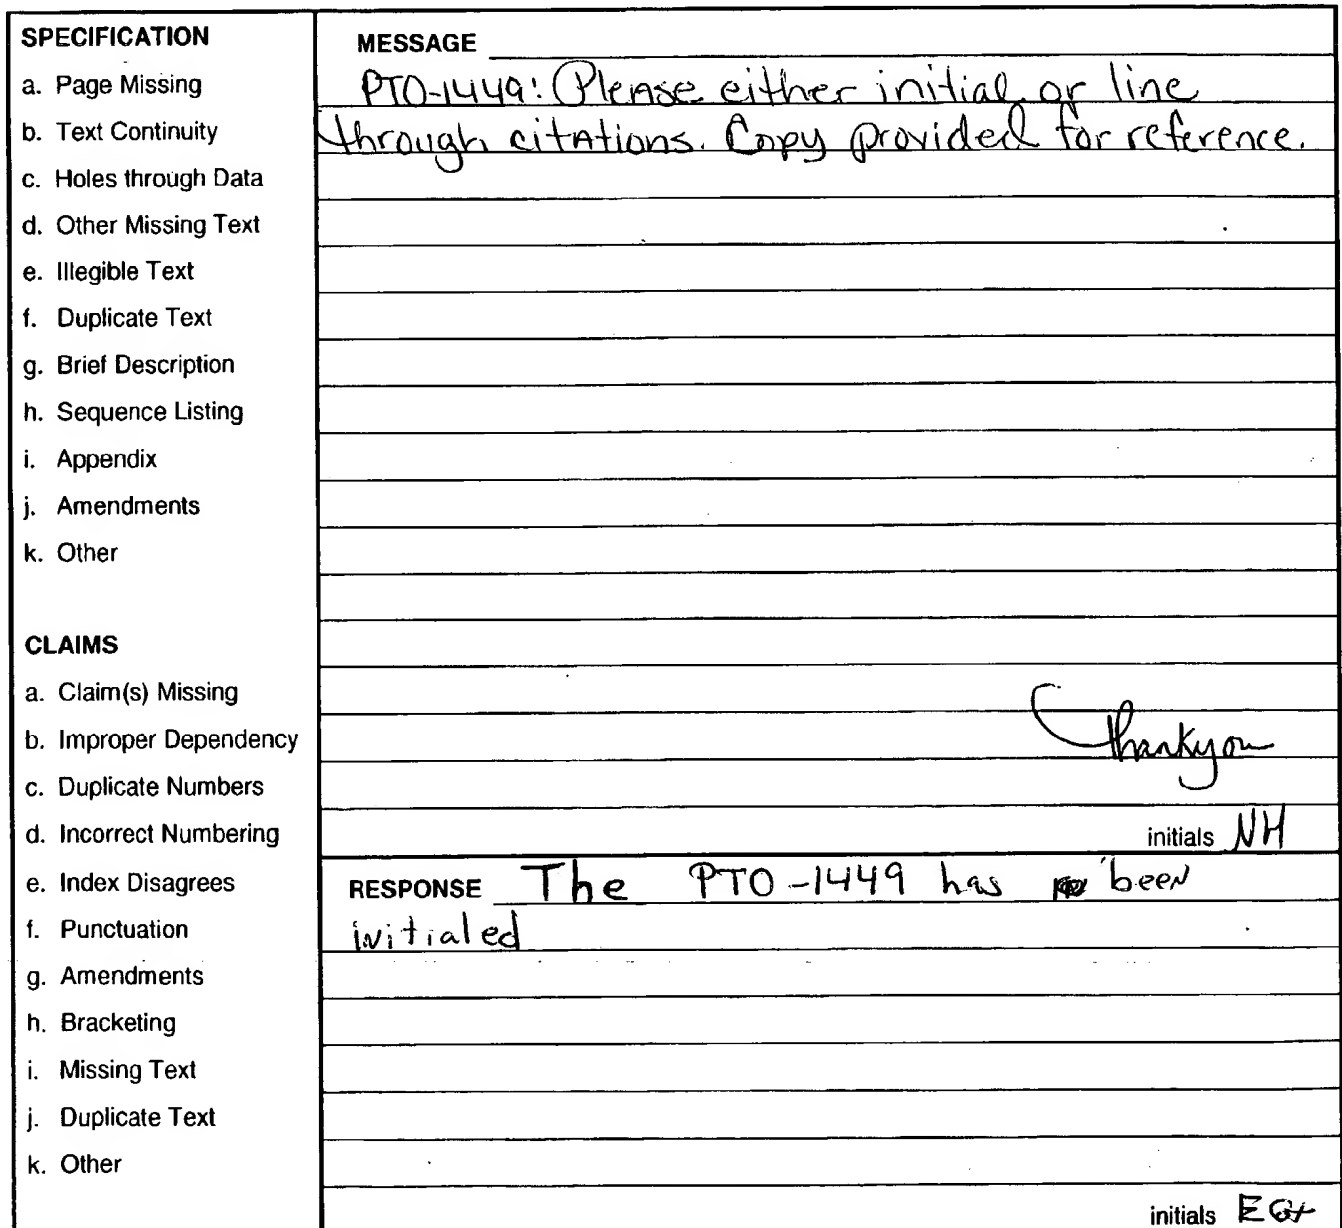 SPECIFICATION
a. Page Missing
b. Text Continuity
c. Holes through Data
d. Other Missing Text
e. Illegible Text
f. Duplicate Text
g. Brief Description
h. Sequence Listing
i. Appendix
j. Amendments
k. Other
CLAIMS
a. Claim(s) Missing
b. Improper Dependency
c. Duplicate Numbers
d. Incorrect Numbering
e. Index Disagrees
f. Punctuation
g. Amendments
h. Bracketing
i. Missing Text
j. Duplicate Text
k. Other
MESSAGE
PTO-1449: Please either initial or line
through citations. Copy provided for reference.
Thankyou
initials NH
RESPONSE The PTO-1449 has been
initialed
initials